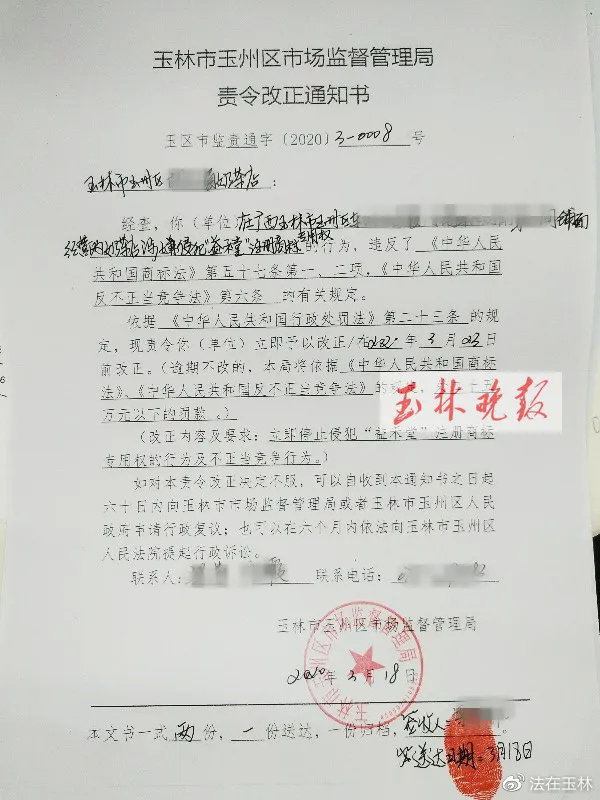 玉林市玉州区市场监督管理局
责令改正通知书
玉区市监查通字〔2020〕3-0008号
玉林市玉州区 奶茶店：
经查，你（单位 在广西玉林市玉州区 铺面
经营的奶茶店涉嫌侵犯“益禾堂”注册商标专用权的行为，违反了《中华人民
共和国商标法》第五十七条第一、二项，《中华人民共和国
反不正当竞争法》第六条 的有关规定。
依据《中华人民共和国行政处罚法》第二十三条的规
定，现责令你（单位）立即予以改正/在2020年3月23日
前改正。（逾期不改的，本局将依据《中华人民共和国商标
法》、《中华人民共和国反不正当竞争法》的规定，
万元以下的罚款。）
玉林晚报
（改正内容及要求：立即停止侵犯“益禾堂”注册商标
专用权的行为及不正当竞争行为。）
如对本责令改正决定不服，可以自收到本通知书之日起
六十日内向玉林市市场监督管理局或者玉林市玉州区人民
政府申请行政复议；也可以在六个月内依法向玉林市玉州区
人民法院提起行政诉讼。
联系人： 联系电话：
玉林市玉州区市场监督管理局
玉林市玉州区市场监督管理局
2020年3月18日
本文书一式两份，一份送达，一份归档，签收人：
送达日期：3月18日
@法在玉林